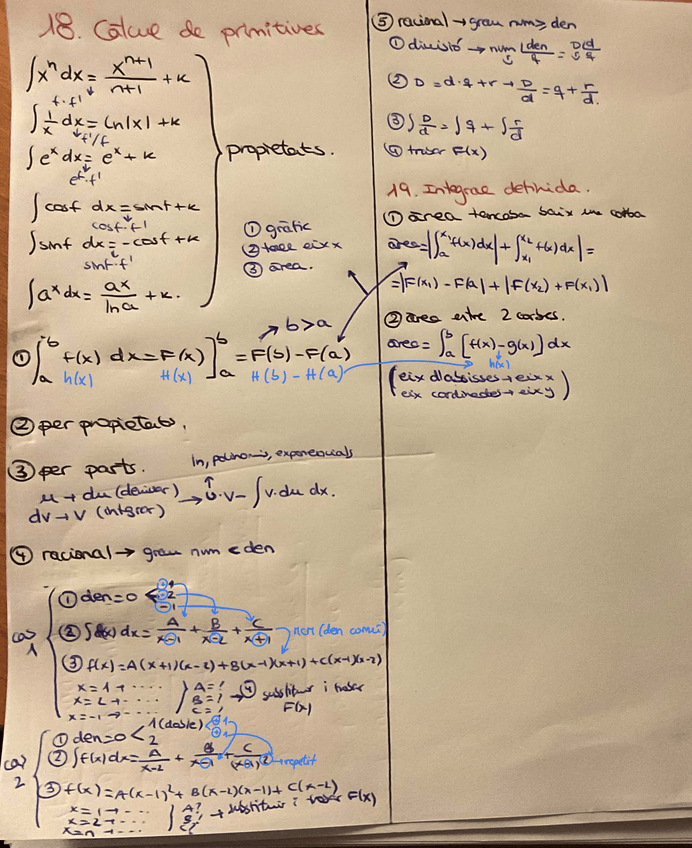 18. Càlcul de primitives
∫xⁿ dx = xⁿ⁺¹/n+1 + k
f·f'
∫1/x dx = ln|x| + k
f'/f
∫eˣ dx = eˣ + k
eᶠ·f'
∫cosf dx = sinf + k
cosf·f'
∫sinf dx = -cosf + k
sinf·f'
∫aˣ dx = ax/ln a + k.
propietats.
① gràfic
② eix x
③ àrea.
→ b>a
① ∫ₐᵇ f(x) dx = F(x)]ₐᵇ = F(b) - F(a)
h(x) H(x) H(b) - H(a)
② per propietats.
③ per parts.
ln, polinomis, exponencials
u → du (derivar) → u·v - ∫v·du dx.
dv → v (integrar)
④ racional → grau num < den
cas 1
① den=0 < +1 -2 -1
② ∫f(x) dx = A/x-1 + B/x-2 + C/x+1 → mcm (den comú)
③ f(x) = A(x+1)(x-2) + B(x-1)(x+1) + C(x-1)(x-2)
x=1 → .... A=?
x=2 → .... B=? → ④ substituir i trobar F(x)
x=-1 → .... C=?
cas 2
① den=0 < 1 (doble) +1 +1
2
② ∫f(x) dx = A/x-2 + B/x-1 + C/(x-1)² → repetit
③ f(x) = A(x-1)² + B(x-2)(x-1) + C(x-2)
x=1 → .... A?
x=2 → .... B? → substituir i trobar F(x)
x=n → .... C?
⑤ racional → grau num ≥ den
① divisió → num |den = D/d
② D = d·q + r → D/d = q + r/d.
③ ∫D/d = ∫q + ∫r/d
④ trobar F(x)
19. Integral definida.
① àrea tancada baix una corba
àrea = |∫ₐˣ¹ f(x) dx| + |∫ₓ₁ˣ² f(x) dx| =
= |F(x₁) - F(a)| + |F(x₂) + F(x₁)|
② àrea entre 2 corbes.
àrea = ∫ₐᵇ [f(x) - g(x)] dx
h(x)
(eix d'abscisses → eix x
eix cordinades → eix y)